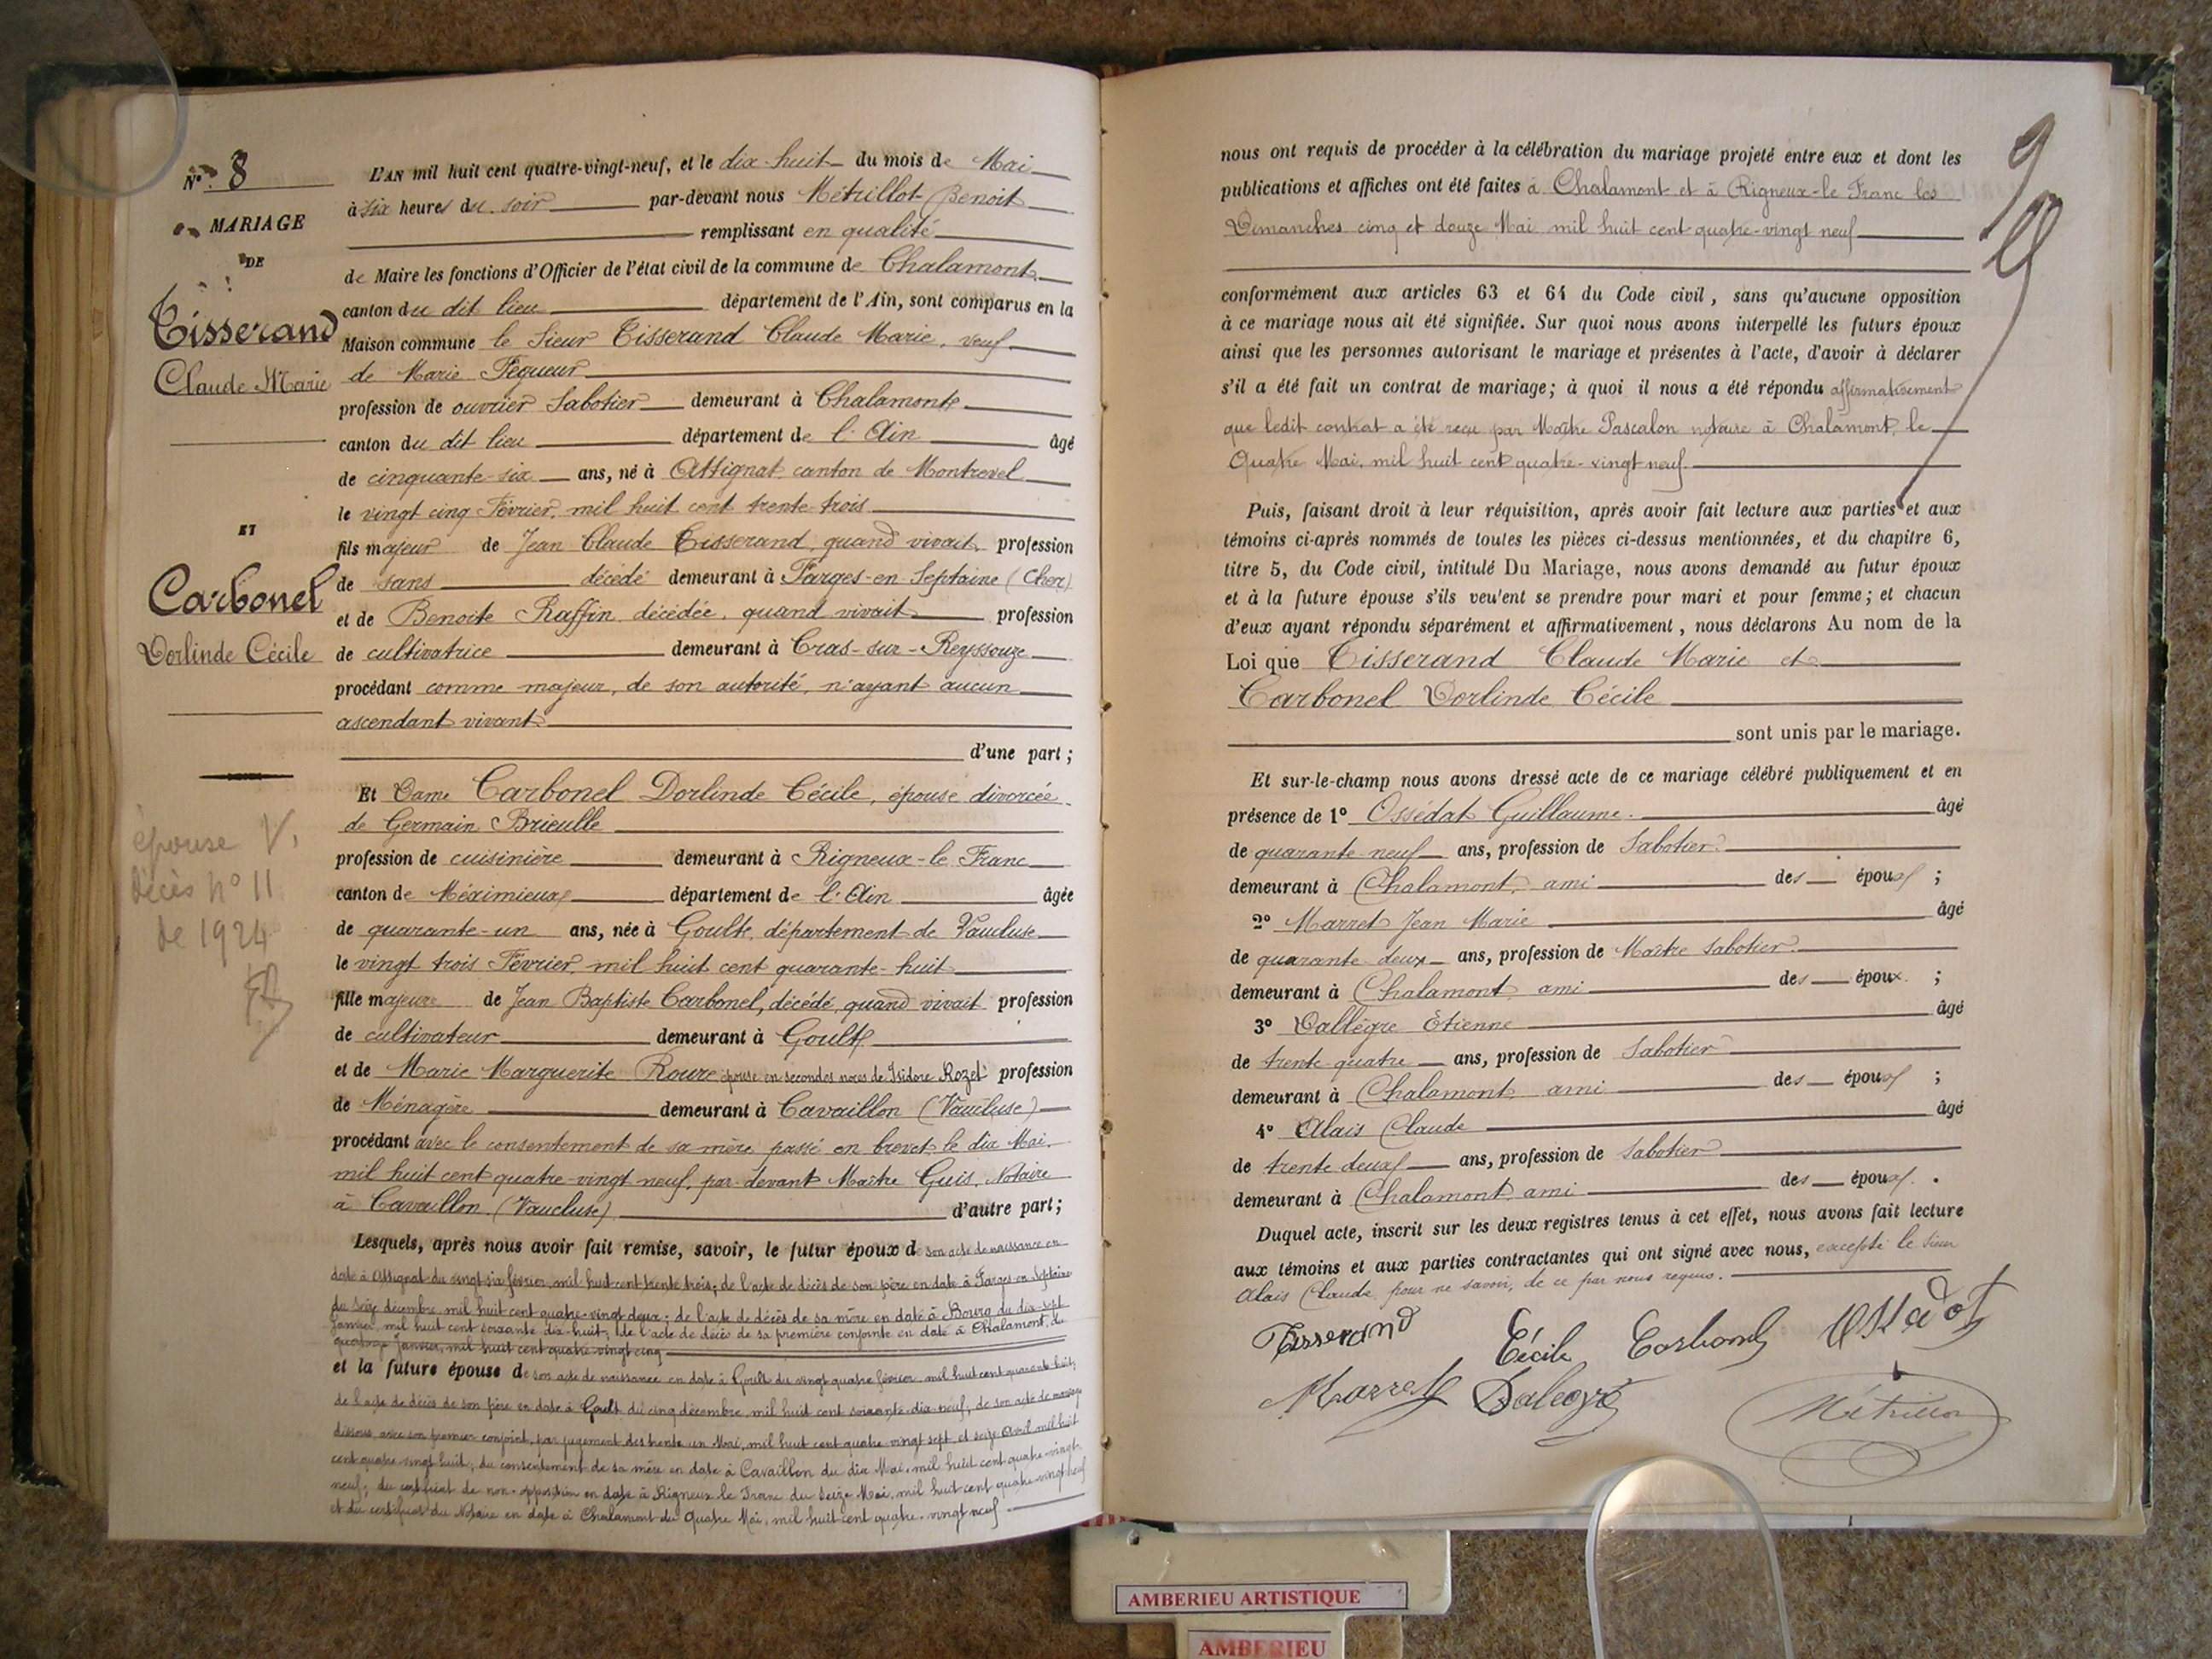 N° 8
MARIAGE
DE
Tisserand
Claude Marie
ET
Carbonel
Dorlinde Cécile
épouse V.
décès n° 11
de 1924
L'AN mil huit cent quatre-vingt-neuf, et le dix-huit du mois de Mai
à six heures du soir par-devant nous Métrillot Benoit
remplissant en qualité
de Maire les fonctions d'Officier de l'état civil de la commune de Chalamont
canton du dit lieu département de l'Ain, sont comparus en la
Maison commune le Sieur Tisserand Claude Marie, veuf
de Marie Féqueur
profession de ouvrier Sabotier demeurant à Chalamont
canton du dit lieu département de l'Ain âgé
de cinquante-six ans, né à Attignat canton de Montrevel
le vingt cinq Février, mil huit cent trente trois
fils majeur de Jean Claude Tisserand, quand vivait profession
de sans décédé demeurant à Farges-en-Septaine (Cher)
et de Benoite Raffin décédée, quand vivait profession
de cultivatrice demeurant à Cras-sur-Reyssouze
procédant comme majeur, de son autorité, n'ayant aucun
ascendant vivant
d'une part ;
Et Dame Carbonel Dorlinde Cécile, épouse divorcée
de Germain Brieulle
profession de cuisinière demeurant à Rigneux-le Franc
canton de Méximieux département de l'Ain âgée
de quarante-un ans, née à Goult, département de Vaucluse
le vingt trois Février, mil huit cent quarante-huit
fille majeure de Jean Baptiste Carbonel, décédé, quand vivait profession
de cultivateur demeurant à Goult
et de Marie Marguerite Roure épouse en secondes noces de Isidore Rozet profession
de Ménagère demeurant à Cavaillon (Vaucluse)
procédant avec le consentement de sa mère passé en brevet, le dix Mai
mil huit cent quatre-vingt neuf, par-devant Maître Guis, Notaire
à Cavaillon (Vaucluse) d'autre part;
Lesquels, après nous avoir fait remise, savoir, le futur époux d son acte de naissance en
date à Attignat du vingt six février, mil huit cent trente trois; de l'acte de décès de son père en date à Farges-en-Septaine
du seize décembre, mil huit cent quatre-vingt deux; de l'acte de décès de sa mère en date à Bourg du dix-sept
Janvier, mil huit cent soixante dix-huit; de l'acte de décès de sa première conjointe en date à Chalamont, du
quatorze Janvier, mil huit cent quatre vingt cinq
et la future épouse de son acte de naissance en date à Goult du vingt quatre février, mil huit cent quarante-huit;
de l'acte de décès de son père en date à Goult du cinq décembre, mil huit cent soixante-dix-neuf; de son acte de mariage
dissous avec son premier conjoint, par jugement des trente un Mai, mil huit cent quatre vingt sept, et seize Avril mil huit
cent quatre-vingt huit; du consentement de sa mère en date à Cavaillon du dix Mai, mil huit cent quatre-vingt-
neuf; du certificat de non-opposition en date à Rigneux le Franc du seize Mai, mil huit cent quatre-vingt neuf
et du certificat du Notaire en date à Chalamont du quatre Mai, mil huit cent quatre-vingt neuf
nous ont requis de procéder à la célébration du mariage projeté entre eux et dont les
publications et affiches ont été faites à Chalamont et à Rigneux-le Franc les
Dimanches cinq et douze Mai mil huit cent quatre-vingt neuf
conformément aux articles 63 et 64 du Code civil, sans qu'aucune opposition
à ce mariage nous ait été signifiée. Sur quoi nous avons interpellé les futurs époux
ainsi que les personnes autorisant le mariage et présentes à l'acte, d'avoir à déclarer
s'il a été fait un contrat de mariage; à quoi il nous a été répondu affirmativement
que ledit contrat a été reçu par Maître Pascalon notaire à Chalamont, le
Quatre Mai, mil huit cent quatre-vingt neuf.
Puis, faisant droit à leur réquisition, après avoir fait lecture aux parties et aux
témoins ci-après nommés de toutes les pièces ci-dessus mentionnées, et du chapitre 6,
titre 5, du Code civil, intitulé Du Mariage, nous avons demandé au futur époux
et à la future épouse s'ils veulent se prendre pour mari et pour femme; et chacun
d'eux ayant répondu séparément et affirmativement, nous déclarons Au nom de la
Loi que Tisserand Claude Marie et
Carbonel Dorlinde Cécile
sont unis par le mariage.
Et sur-le-champ nous avons dressé acte de ce mariage célébré publiquement et en
présence de 1° Ossédat Guillaume. âgé
de quarante neuf ans, profession de Sabotier
demeurant à Chalamont, ami des époux ;
2° Marret Jean Marie âgé
de quarante deux ans, profession de Maître Sabotier
demeurant à Chalamont, ami des époux ;
3° Dallègre Étienne âgé
de trente-quatre ans, profession de Sabotier
demeurant à Chalamont ami des époux ;
4° Alais Claude âgé
de trente deux ans, profession de Sabotier
demeurant à Chalamont, ami des époux .
Duquel acte, inscrit sur les deux registres tenus à cet effet, nous avons fait lecture
aux témoins et aux parties contractantes qui ont signé avec nous, excepté le sieur
Alais Claude pour ne savoir, de ce par nous requis.
Tisserand Cécile Carbonel Ossédat
Marret Dalegre Métrillot
AMBERIEU ARTISTIQUE
AMBERIEU